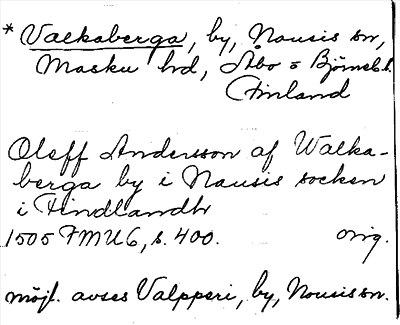 * Valkaberga, by, Nousis sn,
Masku hd, Åbo o Björneb. l.
Finland
Oleff Andersson af Walka-
berga by i Nausis socken
i Findlandh
1505 FMU 6, s. 400. orig.
möjl. avses Valpperi, by, Nousis sn.